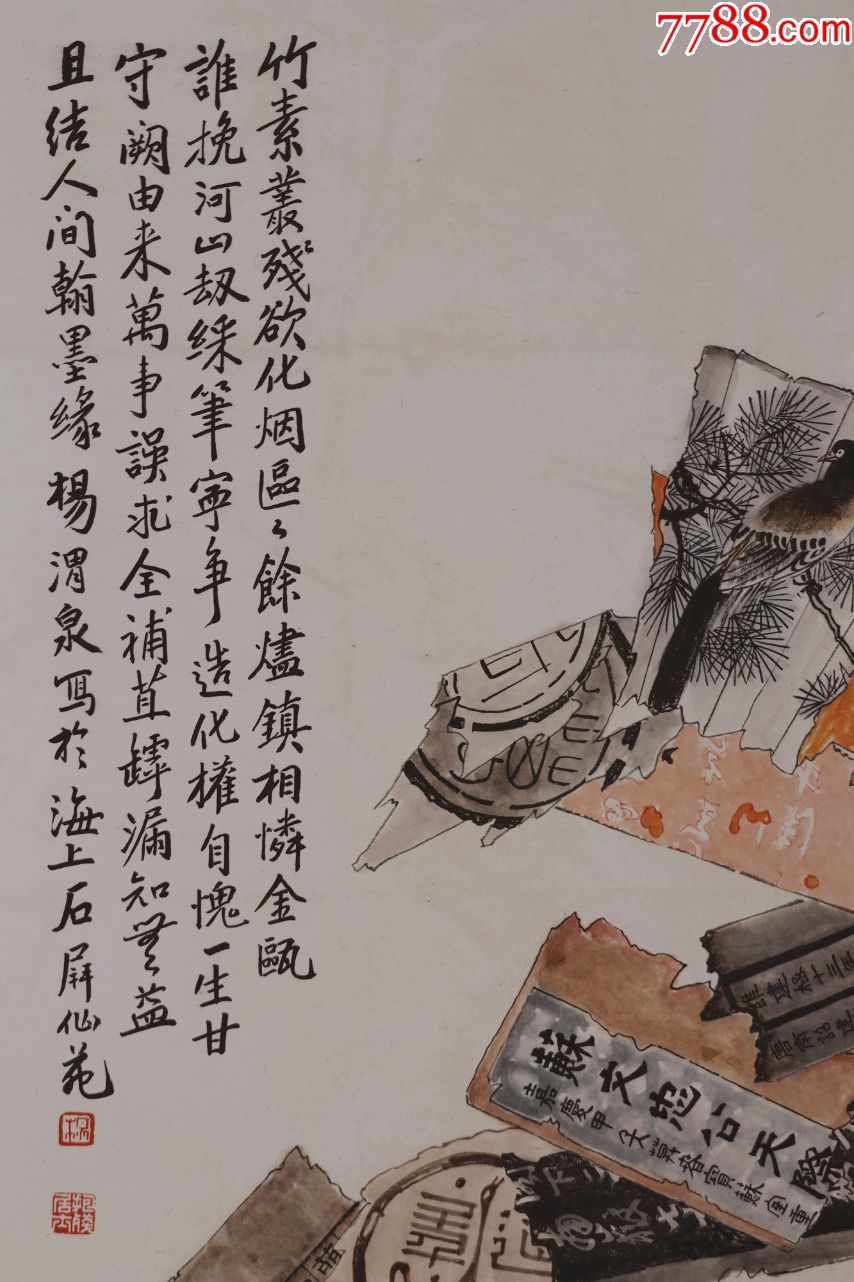 7788.com
竹素叢殘欲化烟區〻餘燼鎮相憐金甌
誰挽河山劫綵筆寧爭造化權自愧一生甘
守闕由来萬事誤求全補苴罅漏知無益
且结人间翰墨缘楊渭泉寫於海上石屏仙苑
楊
蘇文忠公天際